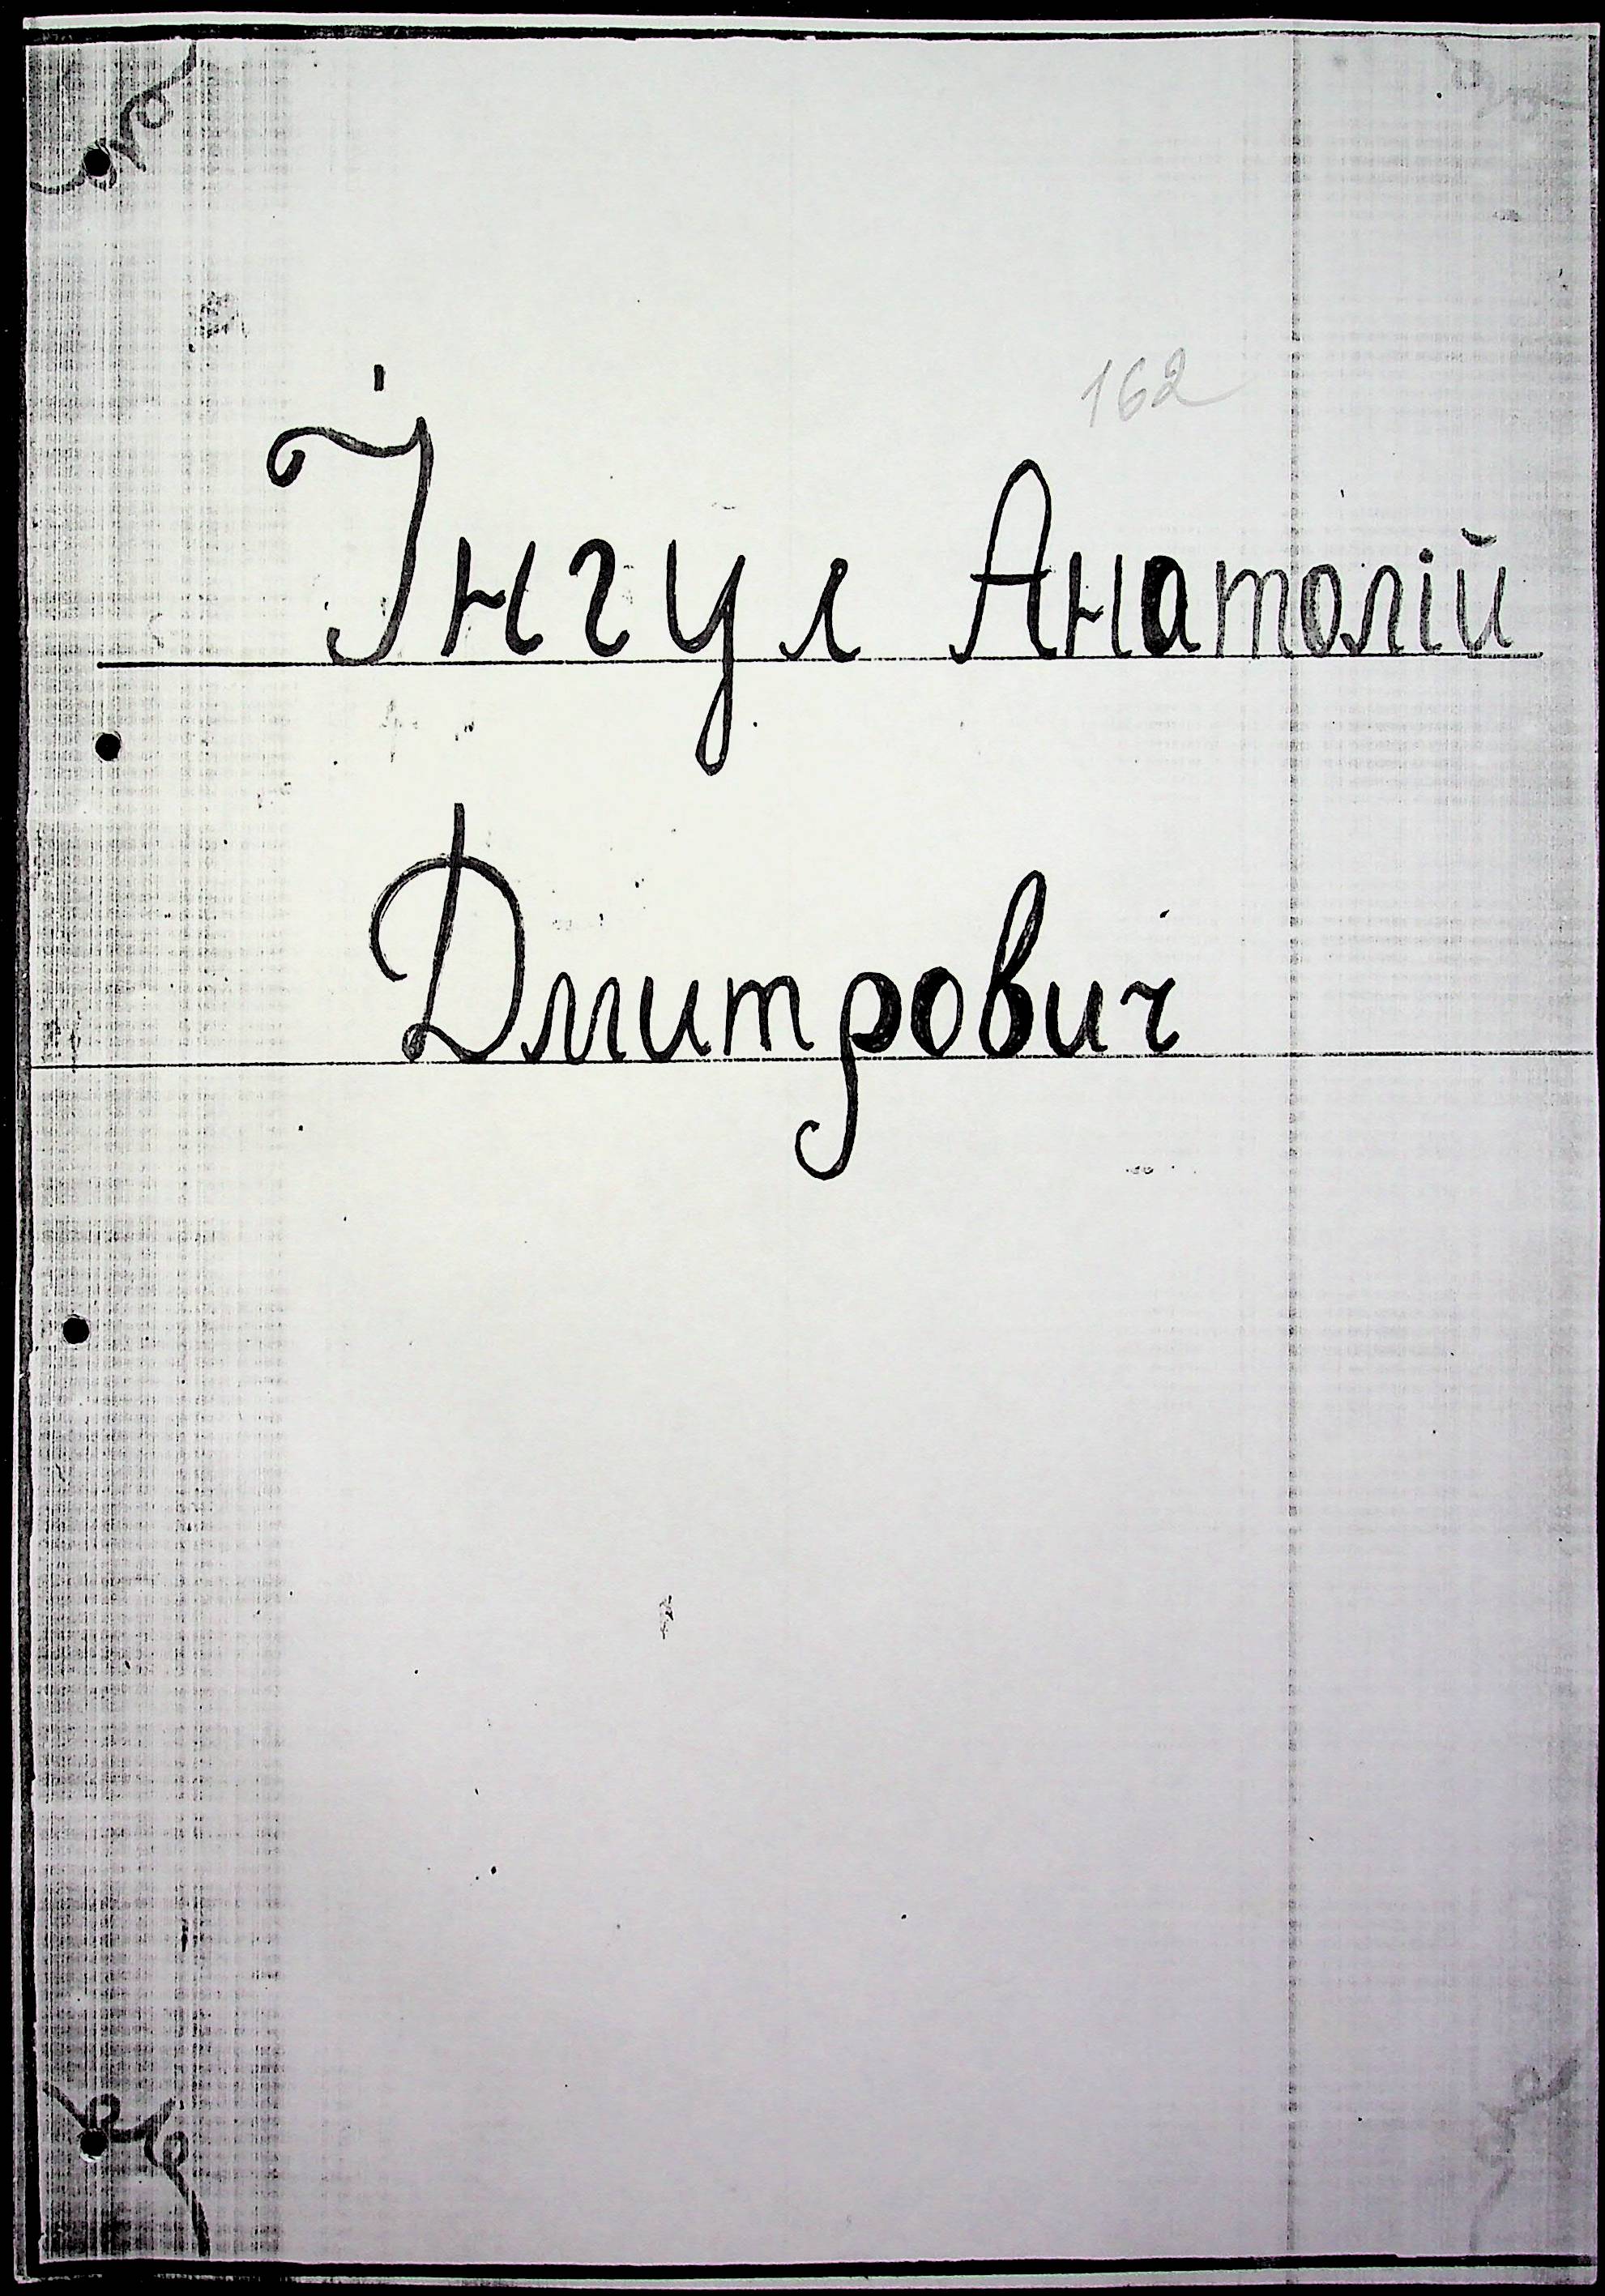 162
Інгул Анатолій
Дмитрович